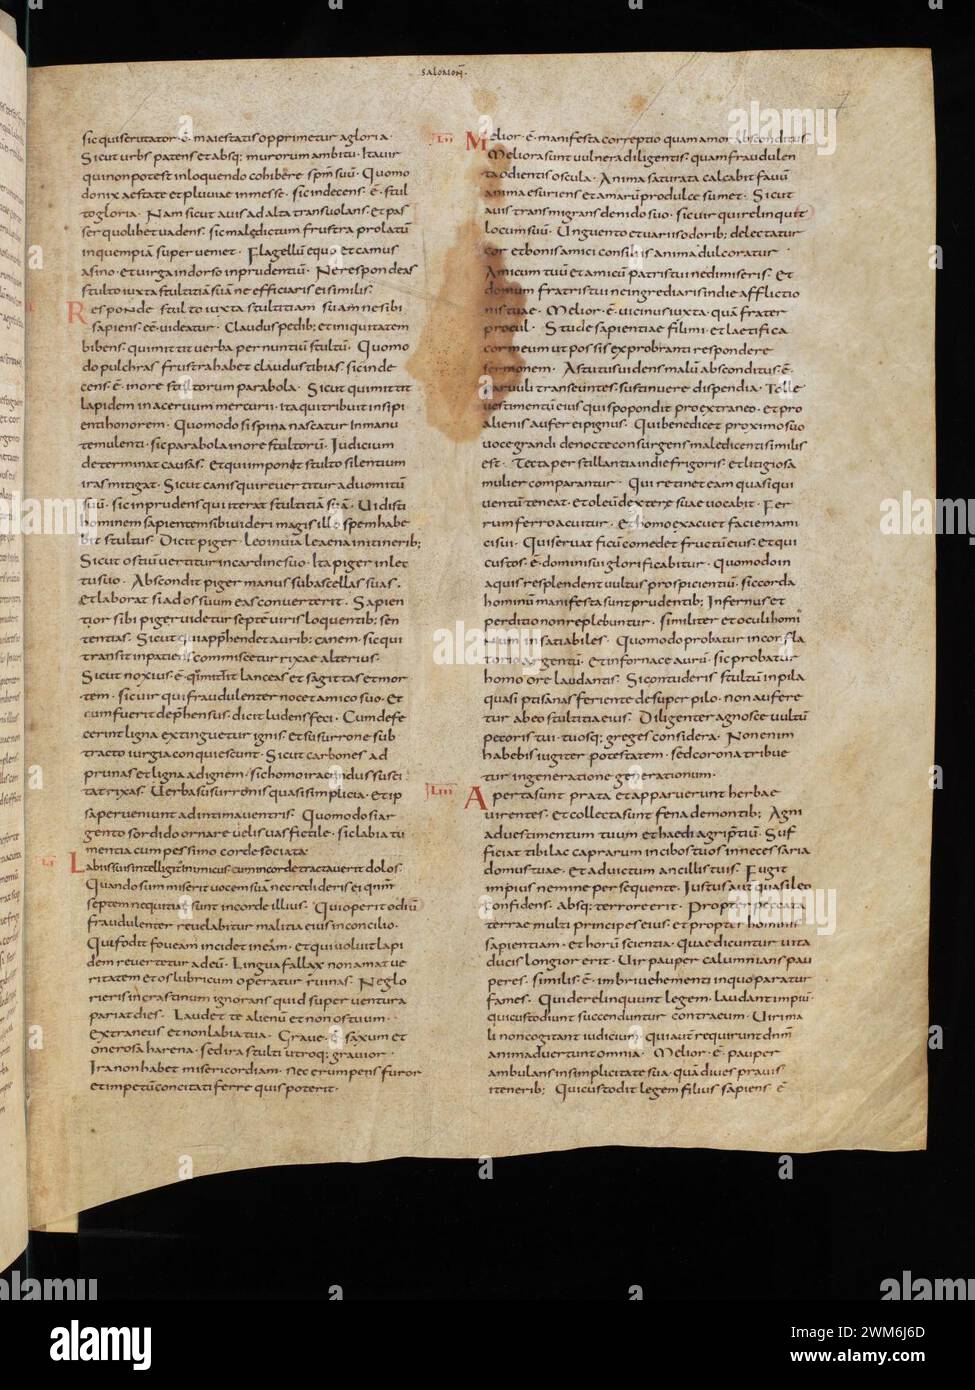 SALOMON̄·
sic qui scrutator· ē· maiestatis opprimetur a gloria·
Sicut urbs patens et absq; murorum ambitu· Ita uir
qui non potest in loquendo cohibere sp̄m suū· Quomo
do nix aestate et pluuiae in messe· sic indecens· ē· stul
to gloria· Nam sicut auis ad alta transuolans· et pas
ser quolibet uadens· sic maledictum frustra prolatū
in quempiā superueniet· Flagellū equo et camus
asino· et uirga in dorso inprudentiū· Ne respondeas
stulto iuxta stultitiā suā ne efficiaris ei similis·
Responde stulto iuxta stultitiam suam ne sibi
sapiens eē uideatur· Claudus pedib; et iniquitatem
bibens· qui mittit uerba per nuntiū stultū· Quomo
do pulchras frustra habet claudus tibias· sic inde
cens· ē· in ore stultorum parabola· Sicut qui mittit
lapidem in aceruum mercurii· ita qui tribuit insipi
enti honorem· Quomodo si spina nascatur in manu
temulenti· sic parabola in ore stultorū· Iudicium
determinat causas· Et qui imponet stulto silentium
iras mitigat· Sicut canis qui reuertitur ad uomitū
suū· sic inprudens qui iterat stultitiā suā· Uidisti
hominem sapientem sibi uideri magis illo spem habe
bit stultus· Dicit piger· leo in uia leaena in itinerib;
Sicut ostiū uertitur in cardine suo· Ita piger in lec
tu suo· Abscondit piger manus sub ascellas suas·
et laborat si ad os suum eas conuerterit· Sapien
tior sibi piger uidetur septē uiris loquentib; sen
tentias· Sicut qui app̄hendet aurib; canem· sic qui
transit inpatiens commiscetur rixae alterius·
Sicut noxius· ē· qui mittit lanceas et sagittas et mor
tem· sic uir qui fraudulenter nocet amico suo· Et
cum fuerit dep̄hensus· dicit ludens feci· Cum defe
cerint ligna extinguetur ignis· et susurrone sub
tracto iurgia conquiescunt· Sicut carbones ad
prunas et ligna ad ignem· sic homo iracundus susci
tat rixas· Uerba susurronis quasi simplicia· et ip
sa perueniunt ad intima uentris· Quomodo si ar
gento sordido ornare uelis uas fictile· sic labia tu
mentia cum pessimo corde sociata·
LI Labiis suis intelligit̄ inimicus· cum in corde tractauerit dolos·
Quando summiserit uocem suā ne credideris ei qm̄
septem nequitiae sunt in corde illius· Qui operit odiū
fraudulenter reuelabitur malitia eius in concilio·
Qui fodit foueam incidet in eam· et qui uoluit lapi
dem reuertetur ad eū· Lingua fallax non amat ue
ritatem et os lubricum operatur ruinas· Ne glo
rieris in crastinum ignorans quid superuentura
pariat dies· Laudet te alienū et non os tuum·
extraneus et non labia tua· Graue· ē· saxum et
onerosa harena· sed ira stulti utroq; grauior·
Ira non habet misericordiam· nec erumpens furor
et impetū concitati ferre quis poterit·
LII Melior· ē· manifesta correptio quam amor absconditus·
Meliora sunt uulnera diligentis· quam fraudulen
ta odientis oscula· Anima saturata calcabit fauū
anima esuriens et amarū pro dulce sumet· Sicut
auis transmigrans de nido suo· sic uir qui relinquit
locum suū· Unguento et uariis odorib; delectatur
cor et bonis amici consiliis anima dulcoratur·
Amicum tuū et amicū patris tui ne dimiseris· Et
domum fratris tui ne ingrediaris in die afflictio
nis tuae· Melior· ē· uicinus iuxta· quā frater
procul· Stude sapientiae fili mi et laetifica
cor meum ut possis exprobranti respondere
sermonem· Astutus uidens malū absconditus· ē·
paruuli transeuntes· sustinuere dispendia· Tolle
uestimentū eius qui spopondit pro extraneo· et pro
alienis aufer ei pignus· Qui benedicet proximo suo
uoce grandi de nocte consurgens maledicenti similis
est· Tecta perstillantia in die frigoris· et litigiosa
mulier comparantur· Qui retinet eam quasi qui
uentū teneat· et oleū dexterae suae uocabit· Fer
rum ferro acuitur· Et homo exacuet faciem ami
ci sui· Qui seruat ficū comedet fructū eius· et qui
custos· ē· domini sui glorificabitur· Quomodo in
aquis resplendent uultus prospicientiū· sic corda
hominū manifesta sunt prudentib; Infernus et
perditio non replebuntur· similiter et oculi homi
num insatiabiles· Quomodo probatur in confla
torio argentū· Et in fornace aurū· sic probatur
homo ore laudantis· Si contuderis stultū in pila
quasi ptisanas feriente desuper pilo· non aufere
tur ab eo stultitia eius· Diligenter agnosce uultū
pecoris tui· tuosq; greges considera· Non enim
habebis iugiter potestatem· sed corona tribue
tur in generatione generationum·
LIII Aperta sunt prata et apparuerunt herbae
uirentes· et collecta sunt fena de montib; Agni
ad uestimentum tuum et haedi agri p̄tiū· Suf
ficiat tibi lac caprarum in cibos tuos in necessaria
domus tuae· et ad uictum ancillis tuis· Fugit
impius nemine persequente· Iustus aut̄ quasi leo
confidens· absq; terrore erit· Propter peccata
terrae multi principes eius· et propter hominis
sapientiam· et horū scientia· quae dicuntur uita
ducis longior erit· Uir pauper calumnians pau
peres· similis· ē· imbri uehementi in quo paratur
fames· Qui derelinquunt legem· laudant impiū·
qui custodiunt succenduntur contra eum· Uiri ma
li non cogitant iudicium· qui autē requirunt dn̄m
animaduertunt omnia· Melior· ē· pauper
ambulans in simplicitate sua· quā diues prauis
itinerib; Qui custodit legem filius sapiens ē
alamy
Image ID: 2WM6J6D
www.alamy.com